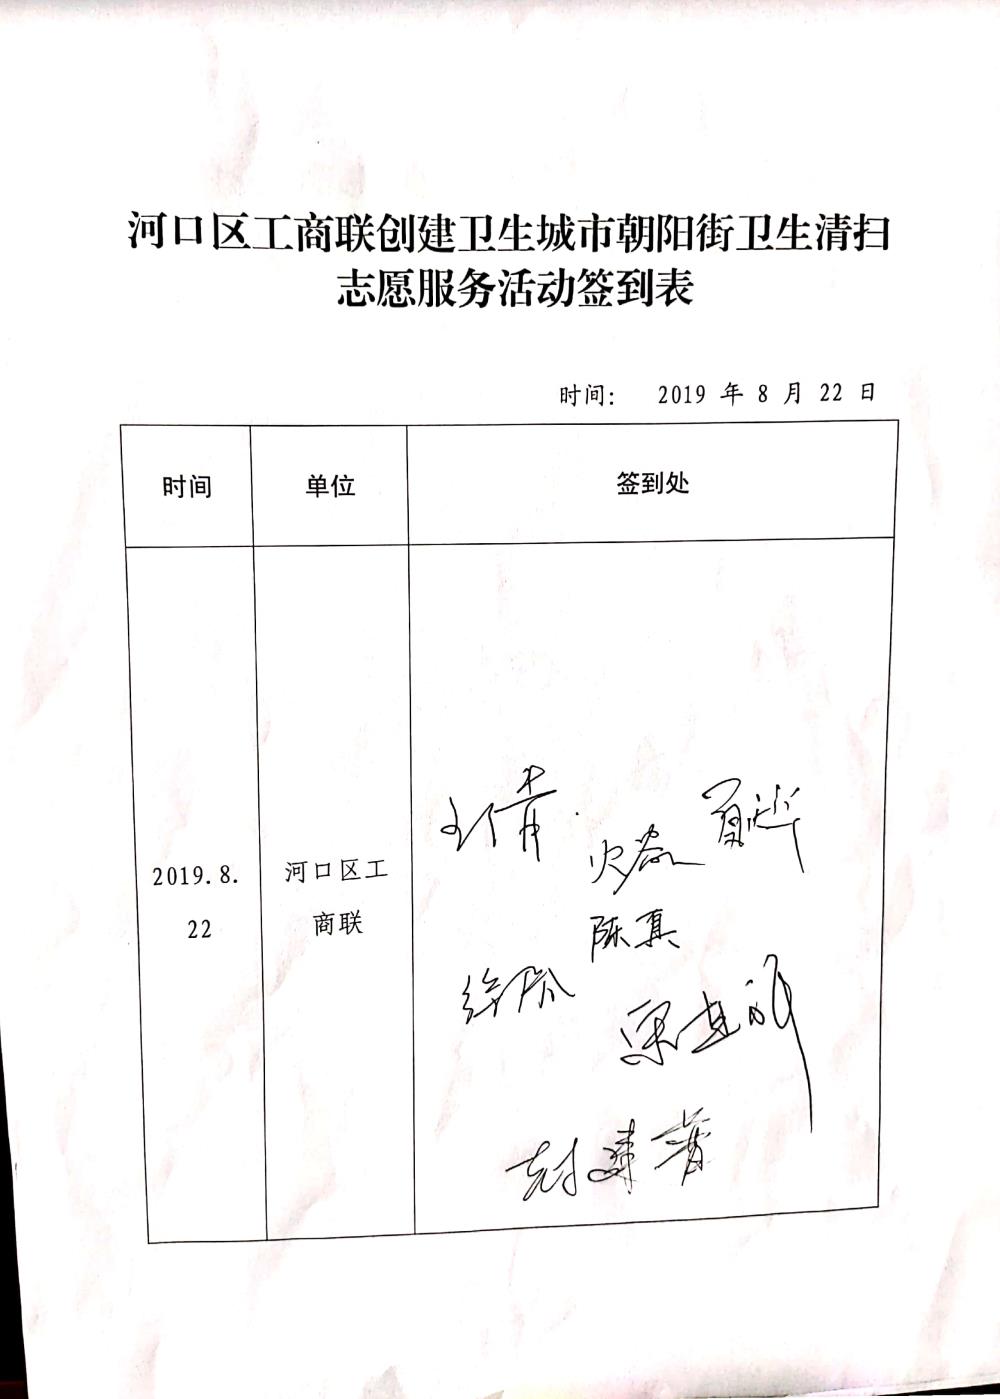 河口区工商联创建卫生城市朝阳街卫生清扫
志愿服务活动签到表
时间： 2019 年 8 月 22 日
时间 单位 签到处
2019.8.
22
河口区工
商联
陈真